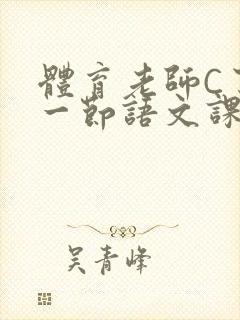 體育老師C
一節語文課
吳青峰